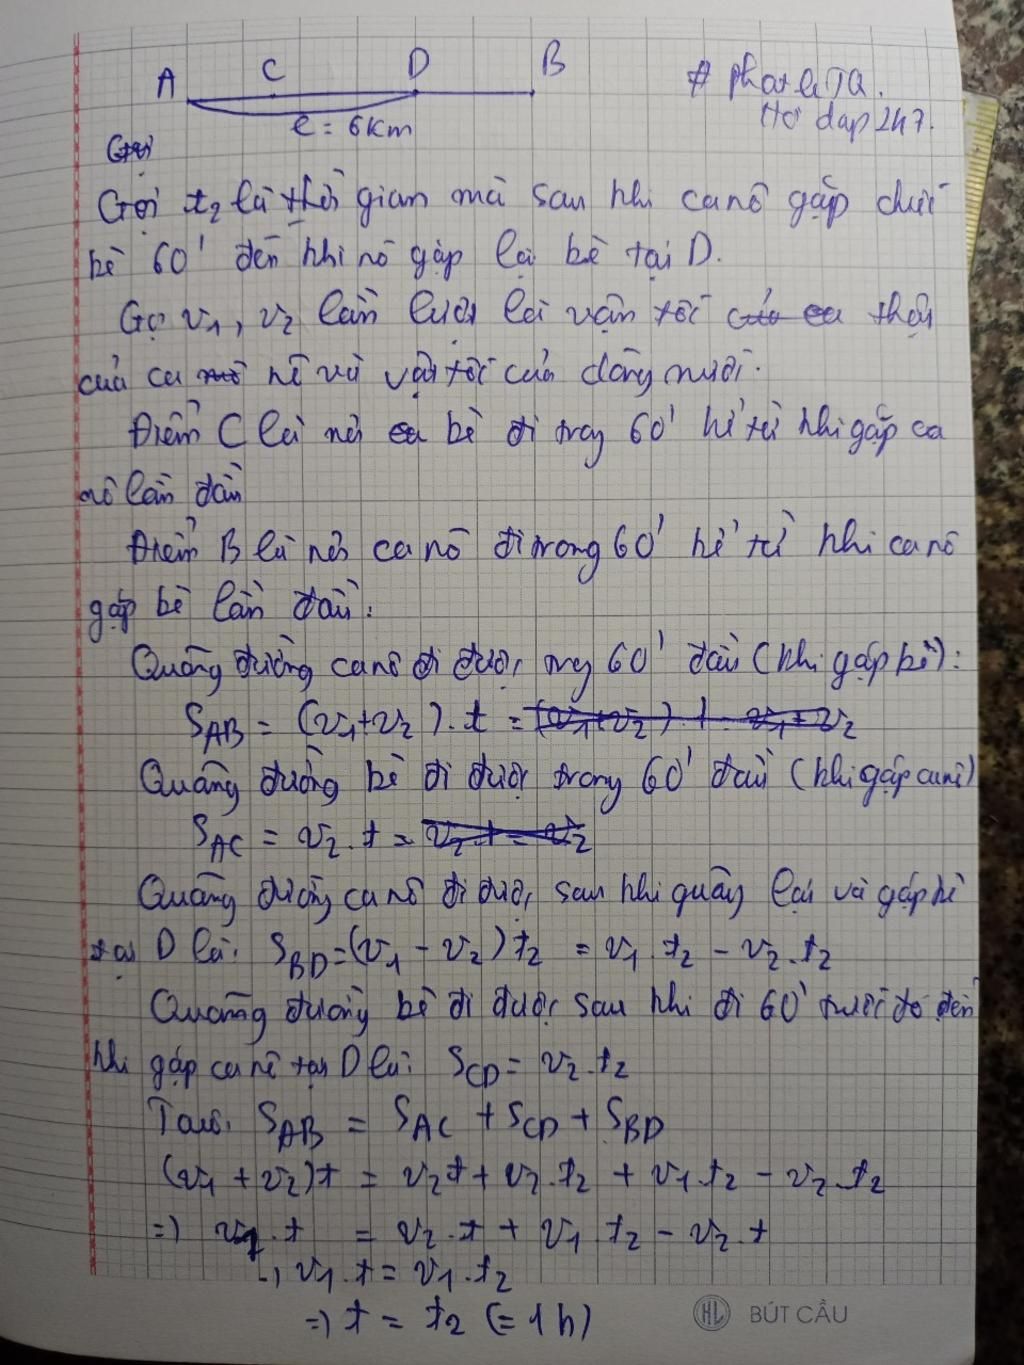 A C D B
# phatleTQ.
Hỏi đáp 247.
l = 6km
Gọi
Gọi t2 là thời gian mà sau khi ca nô gặp chiếc
bè 60' đến khi nó gặp lại bè tại D.
Gọi v1, v2 lần lượt là vận tốc thực
của ca nô và vận tốc của dòng nước.
Điểm C là nơi bè đi trong 60' kể từ khi gặp ca
nô lần đầu
Điểm B là nơi ca nô đi trong 60' kể từ khi ca nô
gặp bè lần đầu.
Quãng đường ca nô đi được trong 60' đầu (khi gặp bè):
SAB = (v1+v2).t = (v1+v2).1 = v1+v2
Quãng đường bè đi được trong 60' đầu (khi gặp ca nô)
SAC = v2.t = v2.1 = v2
Quãng đường ca nô đi được sau khi quay lại và gặp bè
tại D là: SBD=(v1 - v2)t2 = v1.t2 - v2.t2
Quãng đường bè đi được sau khi đi 60' trước đó đến
khi gặp ca nô tại D là: SCD = v2.t2
Ta có: SAB = SAC + SCD + SBD
(v1 + v2)t = v2t + v2.t2 + v1.t2 - v2.t2
=> v1.t = v2.t + v1.t2 - v2.t
=> v1.t = v1.t2
=> t = t2 (= 1h)
HL BÚT CẦU